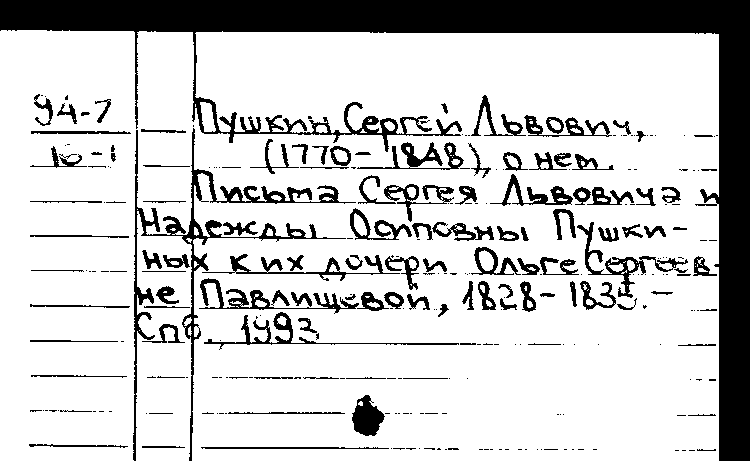 94-7
16-1
Пушкин, Сергей Львович,
(1770-1848), о нем.
Письма Сергея Львовича и
Надежды Осиповны Пушки-
ных к их дочери Ольге Сергеев-
не Павлищевой, 1828-1835.-
Спб., 1993